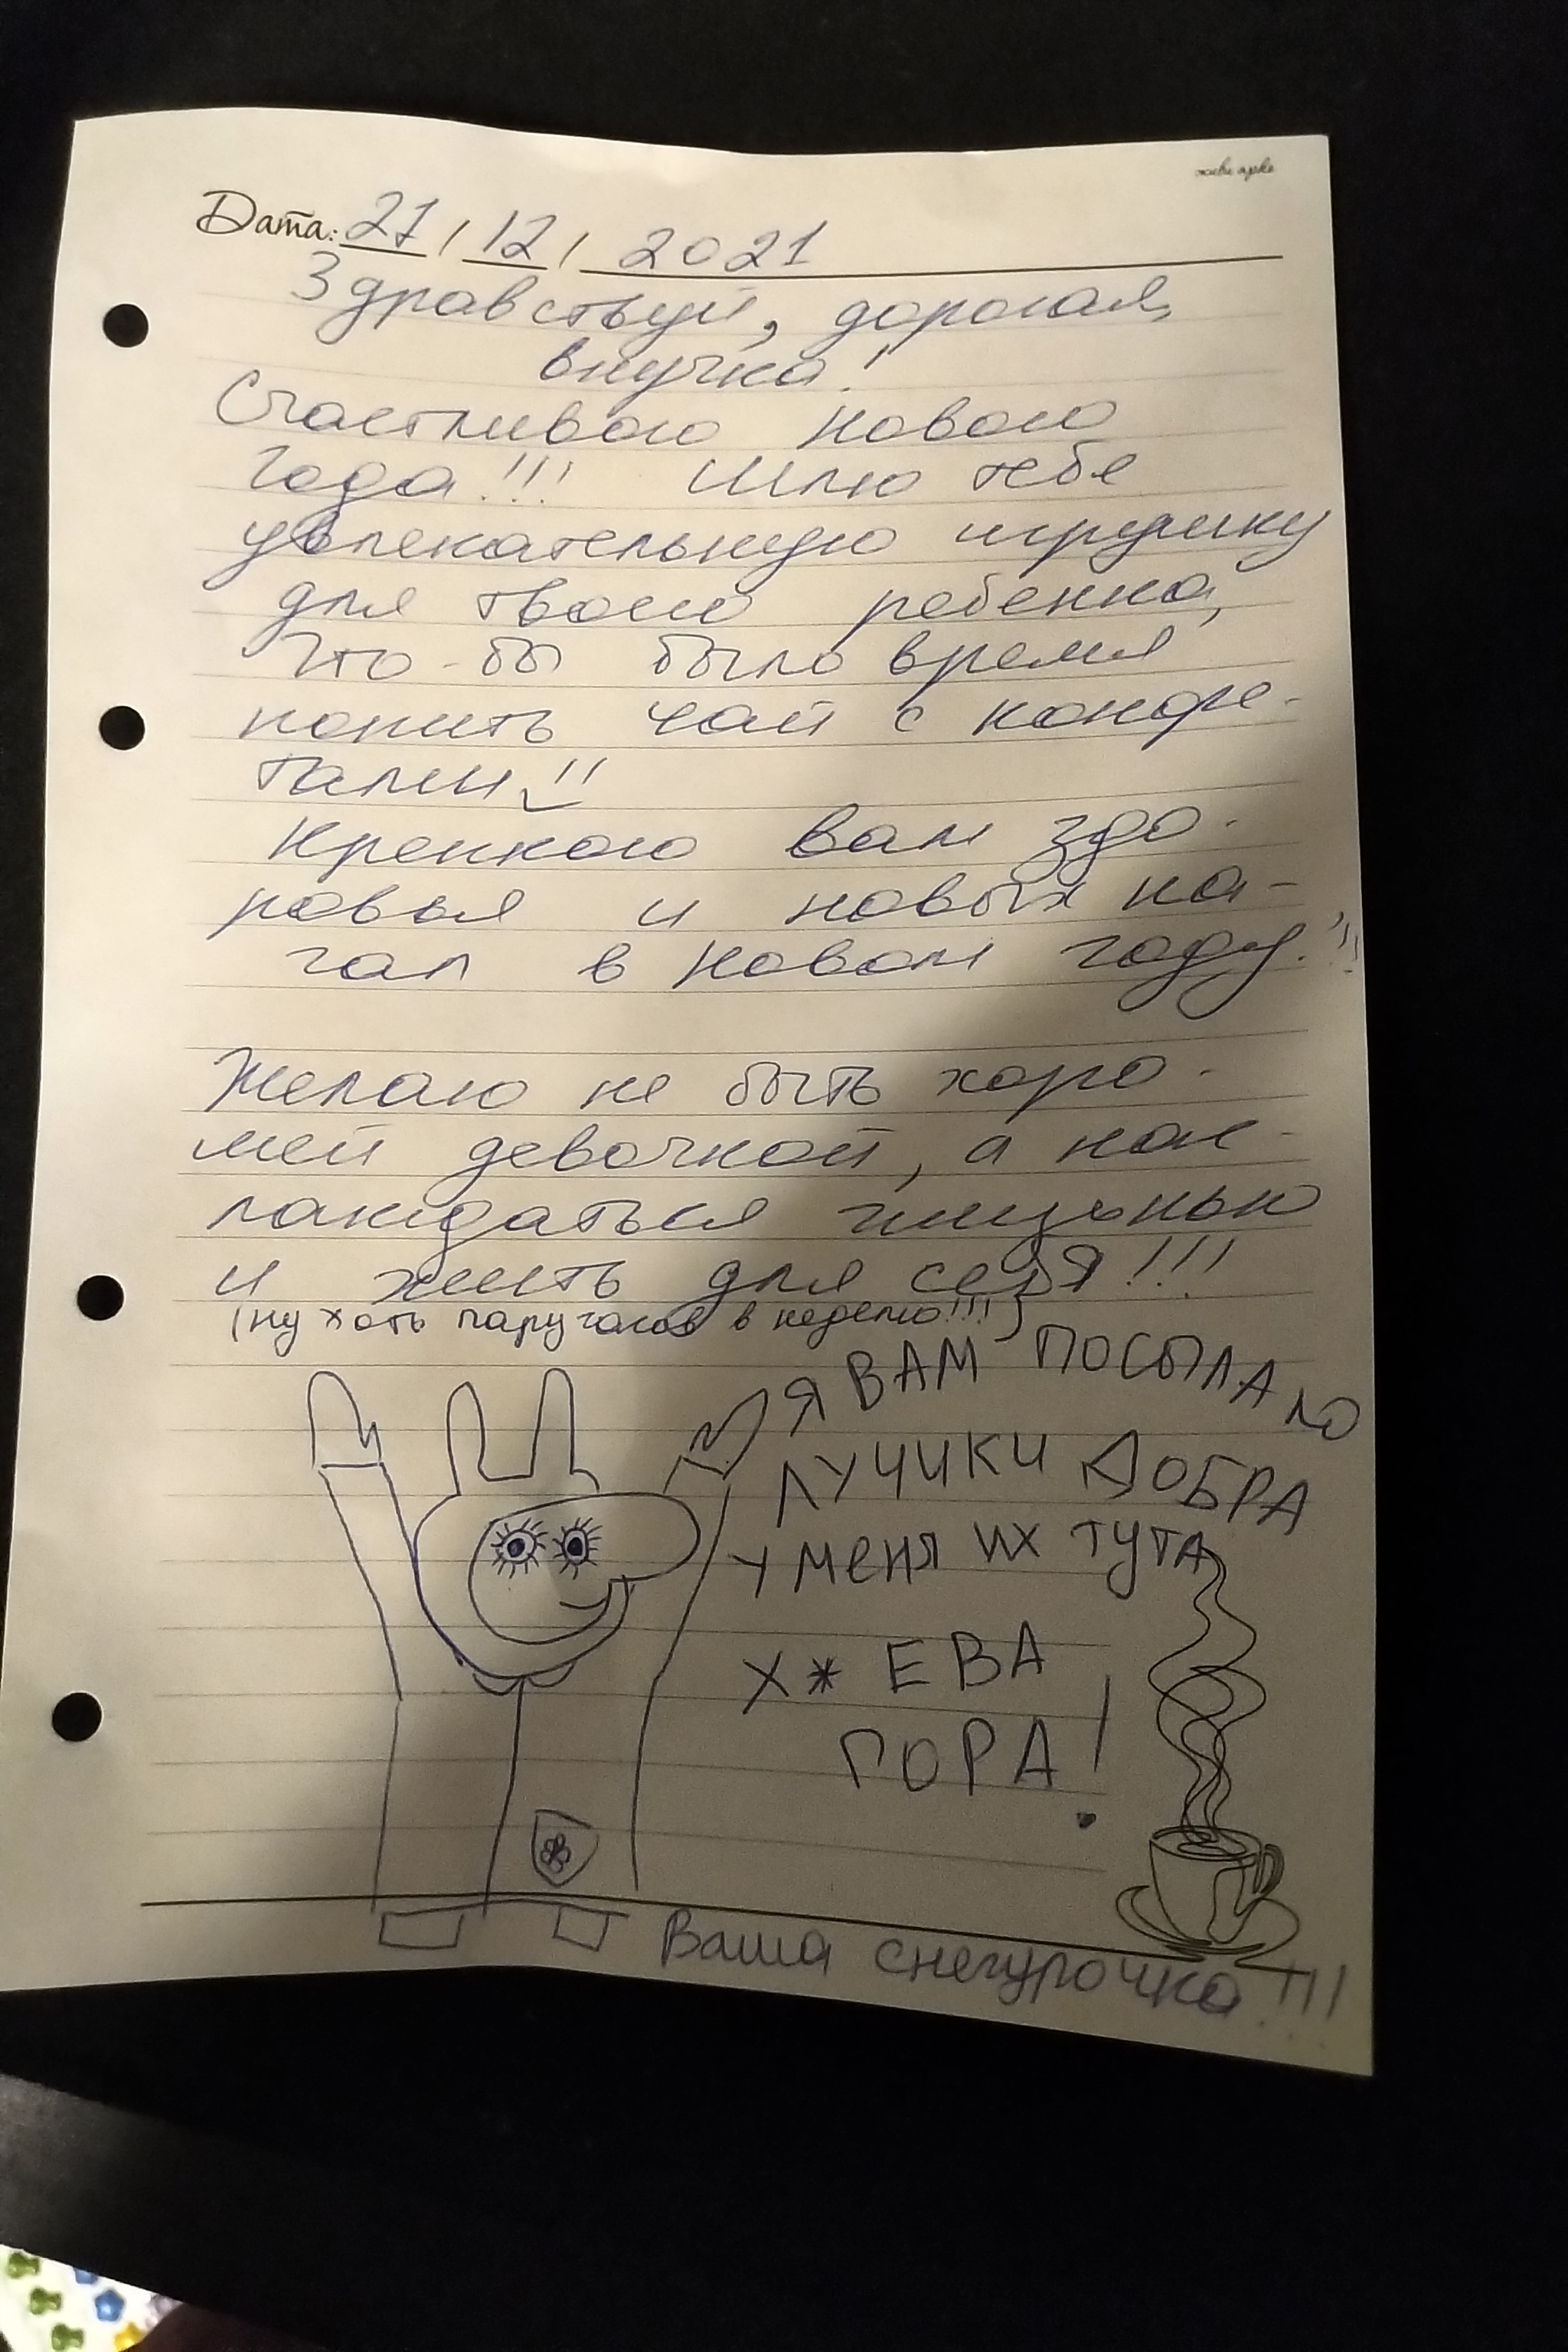 живи ярко
Дата: 27 / 12 / 2021
Здравствуй, дорогая,
внучка!
Счастливого нового
года!!! Шлю тебе
увлекательную игрушку
для твоего ребенка,
что-бы было время
попить чай с конфе-
тами!!
Крепкого вам здо-
ровья и новых на-
чал в новом году!!!
Желаю не быть хоро-
шей девочкой, а нас-
лаждаться жизнью
и жить для себя!!!
(ну хоть пару часов в неделю!!!)
Я ВАМ ПОСЫЛАЮ
ЛУЧИКИ ДОБРА
У МЕНЯ ИХ ТУТА
Х* ЕВА
ГОРА!
Ваша снегурочка!!!